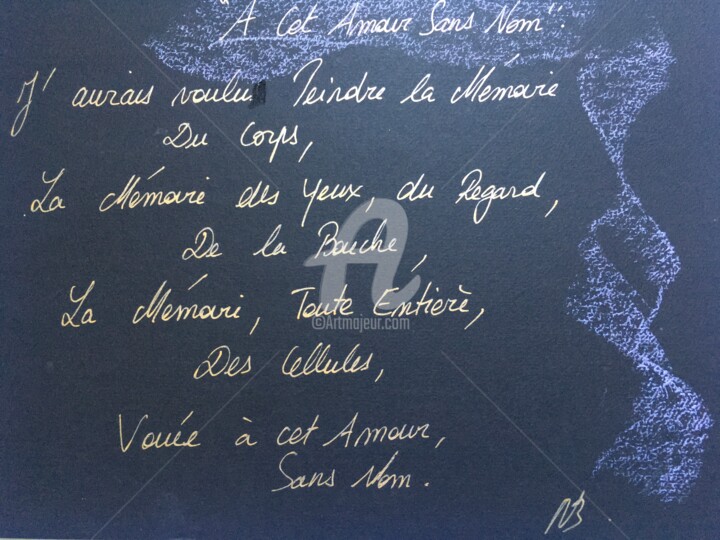 "A Cet Amour Sans Nom".
J'aurais voulu Peindre la Mémoire
Du Corps,
La Mémoire des Yeux, du Regard,
De la Bouche,
©Artmajeur.com
La Mémoire, Toute Entière,
Des Cellules,
Vouée à cet Amour,
Sans Nom.
NB